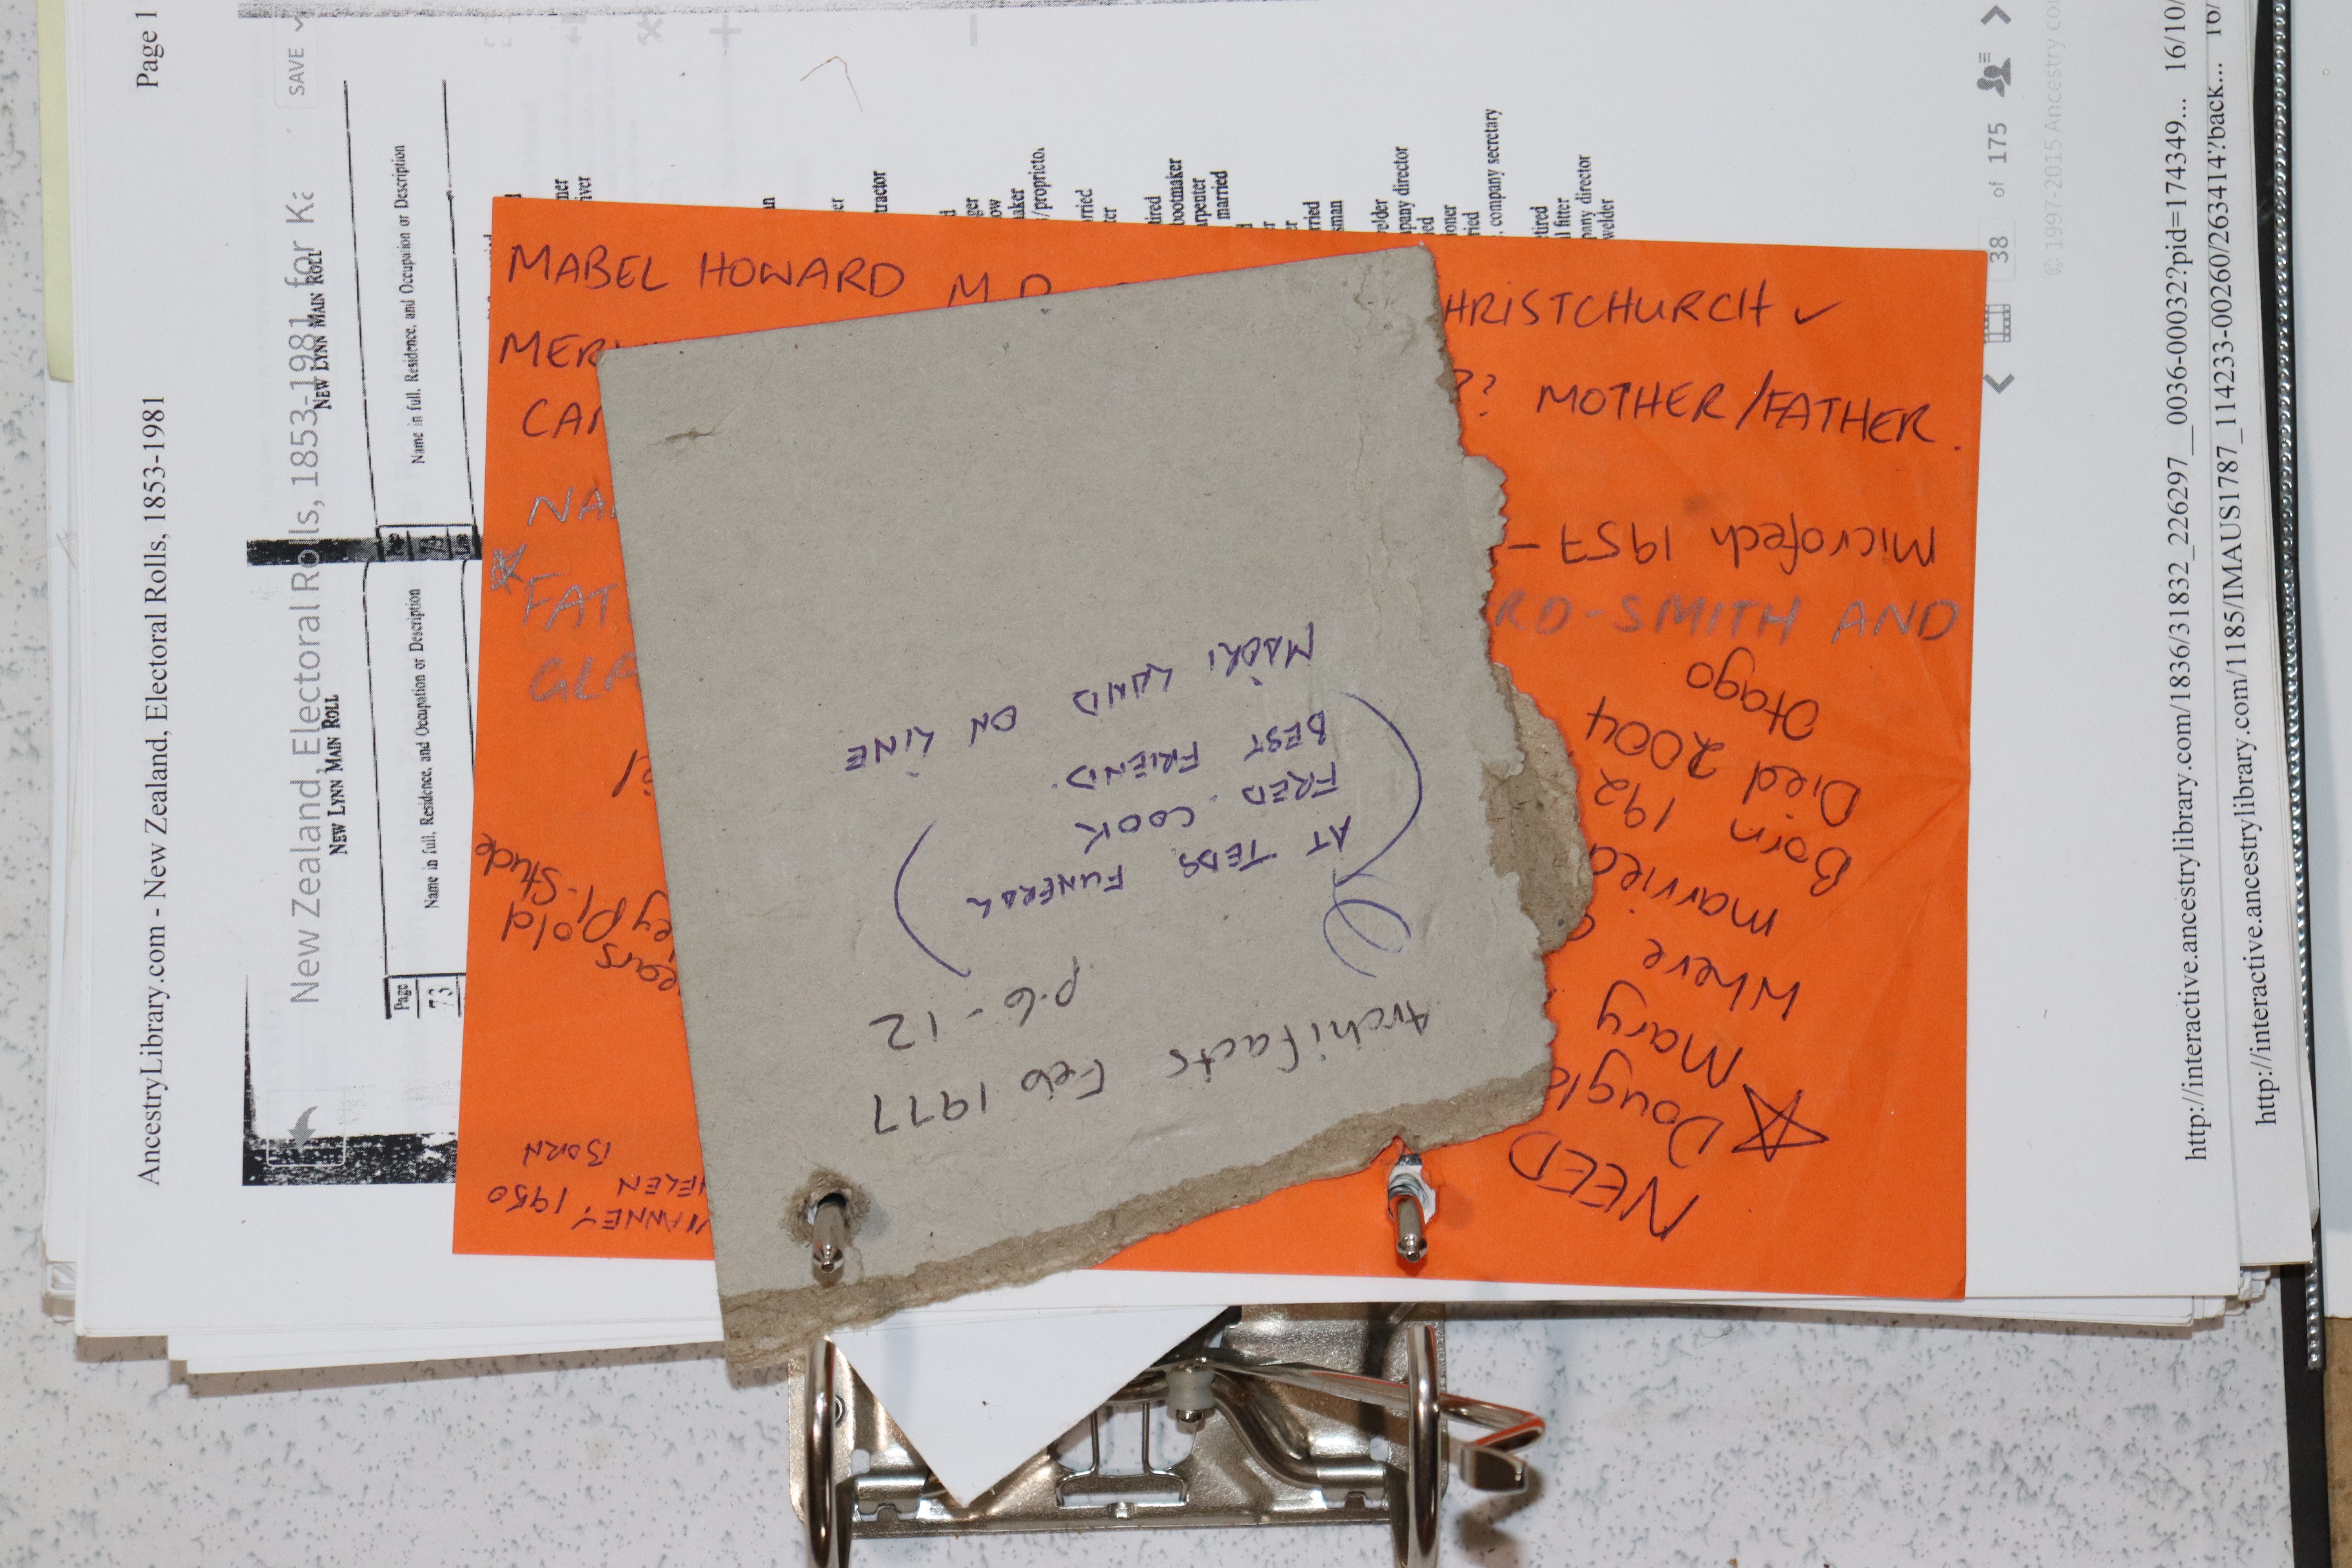 Archifacts Feb 1977
p.6-12
AT TEDS FUNERAL
FRED COOK
BEST FRIEND.
MAORI LAND ON LINE
MABEL HOWARD M.P.
HRISTCHURCH ✓
MER
CAR
?? MOTHER/FATHER.
NA
FAT
RD-SMITH AND
GLA
NEED
☆ Dougla
Mary
Where
married
Born 192
Died 2004
Otago
Microfech 1957 -
VIANNEY 1950
HELEN
BORN
ears old
ey Pl - Stude
AncestryLibrary.com - New Zealand, Electoral Rolls, 1853-1981
Page 1
New Zealand, Electoral Rolls, 1853-1981 for Ka
SAVE
NEW LYNN MAIN ROLL
NEW LYNN MAIN ROLL
Page
73
Name in full, Residence, and Occupation or Description
Name in full, Residence, and Occupation or Description
ner
iver
an
er
tractor
d
ger
ow
aker
/proprieto.
rried
ter
tired
bootmaker
arpenter
married
d
er
er
rried
sman
velder
pany director
ied
ioner
ried
, company secretary
tired
l fitter
pany director
welder
38 of 175
© 1997-2015 Ancestry.co
http://interactive.ancestrylibrary.com/1836/31832_226297__0036-00032?pid=174349... 16/10/
http://interactive.ancestrylibrary.com/1185/IMAUS1787_114233-00260/263414?back... 16/